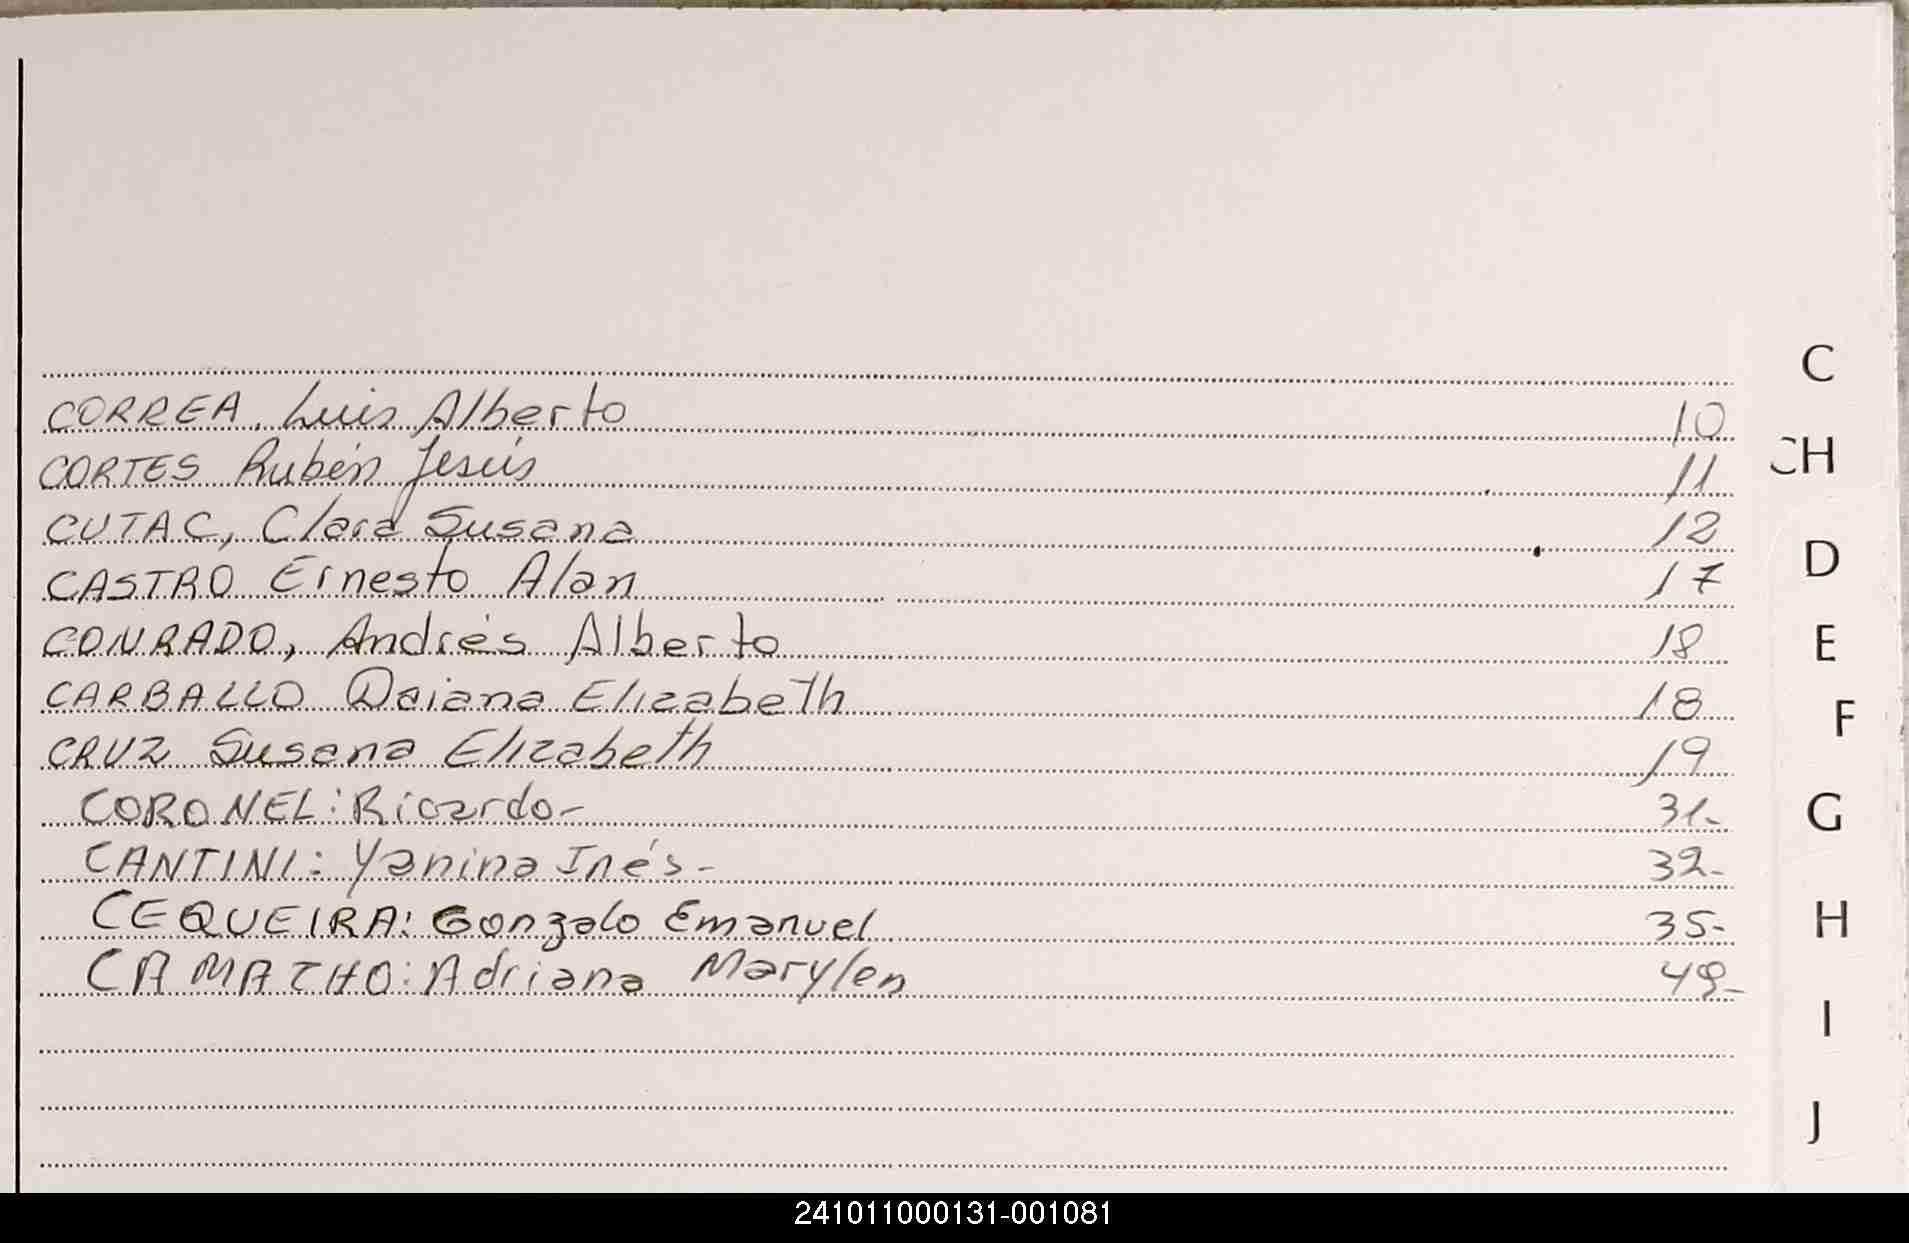 CORREA, Luis Alberto 10
CORTES Rubén Jesús 11
CUTAC, Clara Susana 12
CASTRO Ernesto Alan 17
CONRADO, Andrés Alberto 18
CARBALLO Daiana Elizabeth 18
CRUZ Susana Elizabeth 19
CORONEL: Ricardo- 31-
CANTINI: Yanina Inés- 32-
CEQUEIRA: Gonzalo Emanuel 35-
CAMACHO: Adriana Marylen 49-
C
CH
D
E
F
G
H
I
J
241011000131-001081